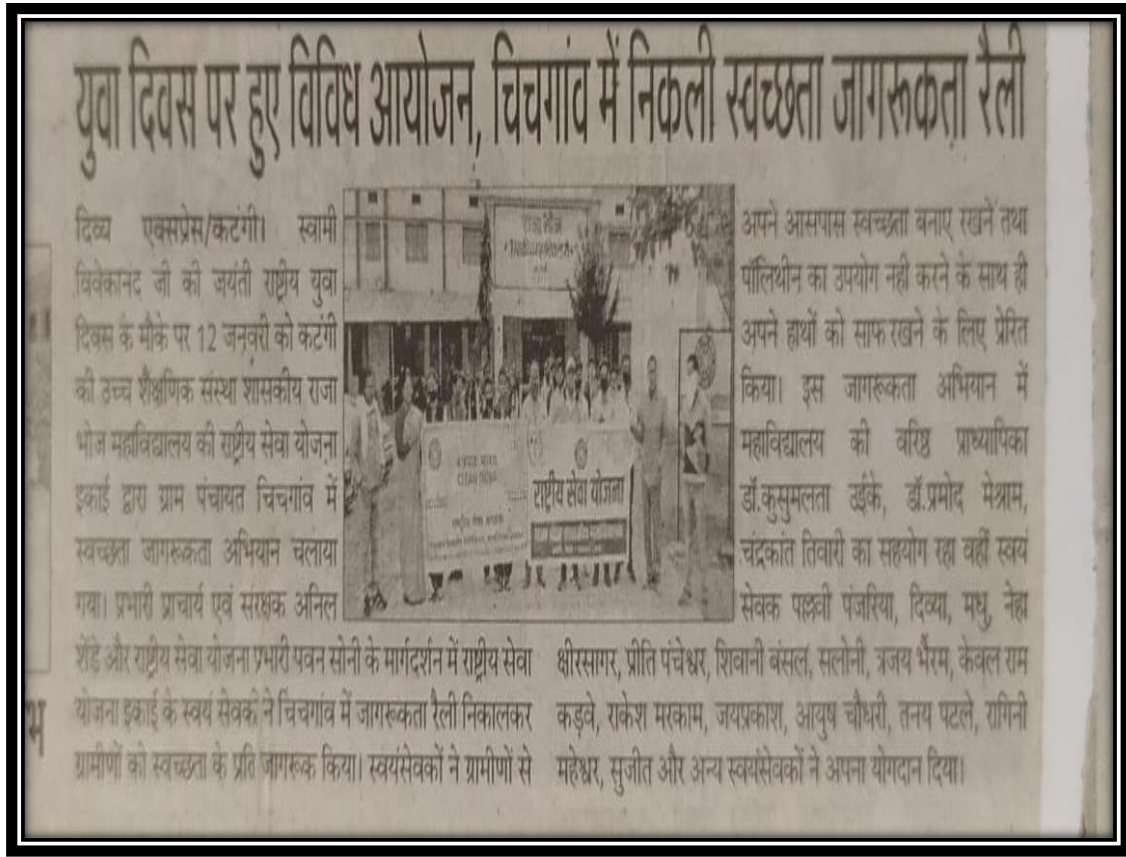 युवा दिवस पर हुए विविध आयोजन, चिचगांव में निकली स्वच्छता जागरूकता रैली
दिव्य एक्सप्रेस/कटंगी। स्वामी
विवेकानंद जी की जयंती राष्ट्रीय युवा
दिवस के मौके पर 12 जनवरी को कटंगी
की उच्च शैक्षणिक संस्था शासकीय राजा
भोज महाविद्यालय की राष्ट्रीय सेवा योजना
इकाई द्वारा ग्राम पंचायत चिचगांव में
स्वच्छता जागरूकता अभियान चलाया
गया। प्रभारी प्राचार्य एवं संरक्षक अनिल
शेंडे और राष्ट्रीय सेवा योजना प्रभारी पवन सोनी के मार्गदर्शन में राष्ट्रीय सेवा
योजना इकाई के स्वयं सेवको ने चिचगांव में जागरूकता रैली निकालकर
ग्रामीणों को स्वच्छता के प्रति जागरूक किया। स्वयंसेवकों ने ग्रामीणों से
राष्ट्रीय सेवा योजना
अपने आसपास स्वच्छता बनाए रखनें तथा
पॉलिथीन का उपयोग नही करने के साथ ही
अपने हाथों को साफ रखने के लिए प्रेरित
किया। इस जागरूकता अभियान में
महाविद्यालय की वरिष्ठ प्राध्यापिका
डॉ.कुसुमलता उईके, डॉ.प्रमोद मेश्राम,
चंद्रकांत तिवारी का सहयोग रहा वहीं स्वयं
सेवक पल्लवी पंजरिया, दिव्या, मधु, नेहा
क्षीरसागर, प्रीति पंचेश्वर, शिवानी बंसल, सलोनी, भैरम, केवल राम
कड़वे, राकेश मरकाम, जयप्रकाश, आयुष चौधरी, तनय पटले, रागिनी
महेश्वर, सुजीत और अन्य स्वयंसेवकों ने अपना योगदान दिया।